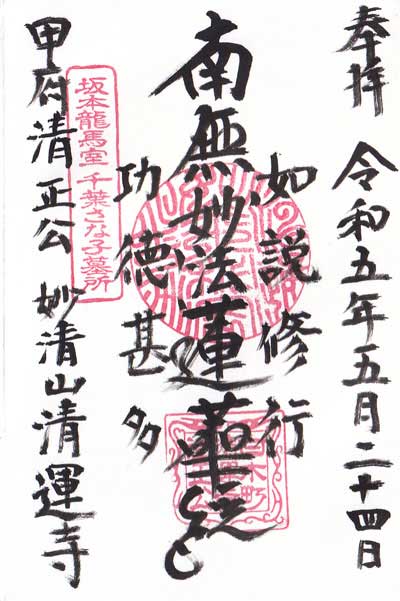 奉拝 令和五年五月二十四日
如説修行
南無妙法蓮華経
功徳甚多
坂本龍馬室 千葉さな子墓所
甲府清正公 妙清山清運寺